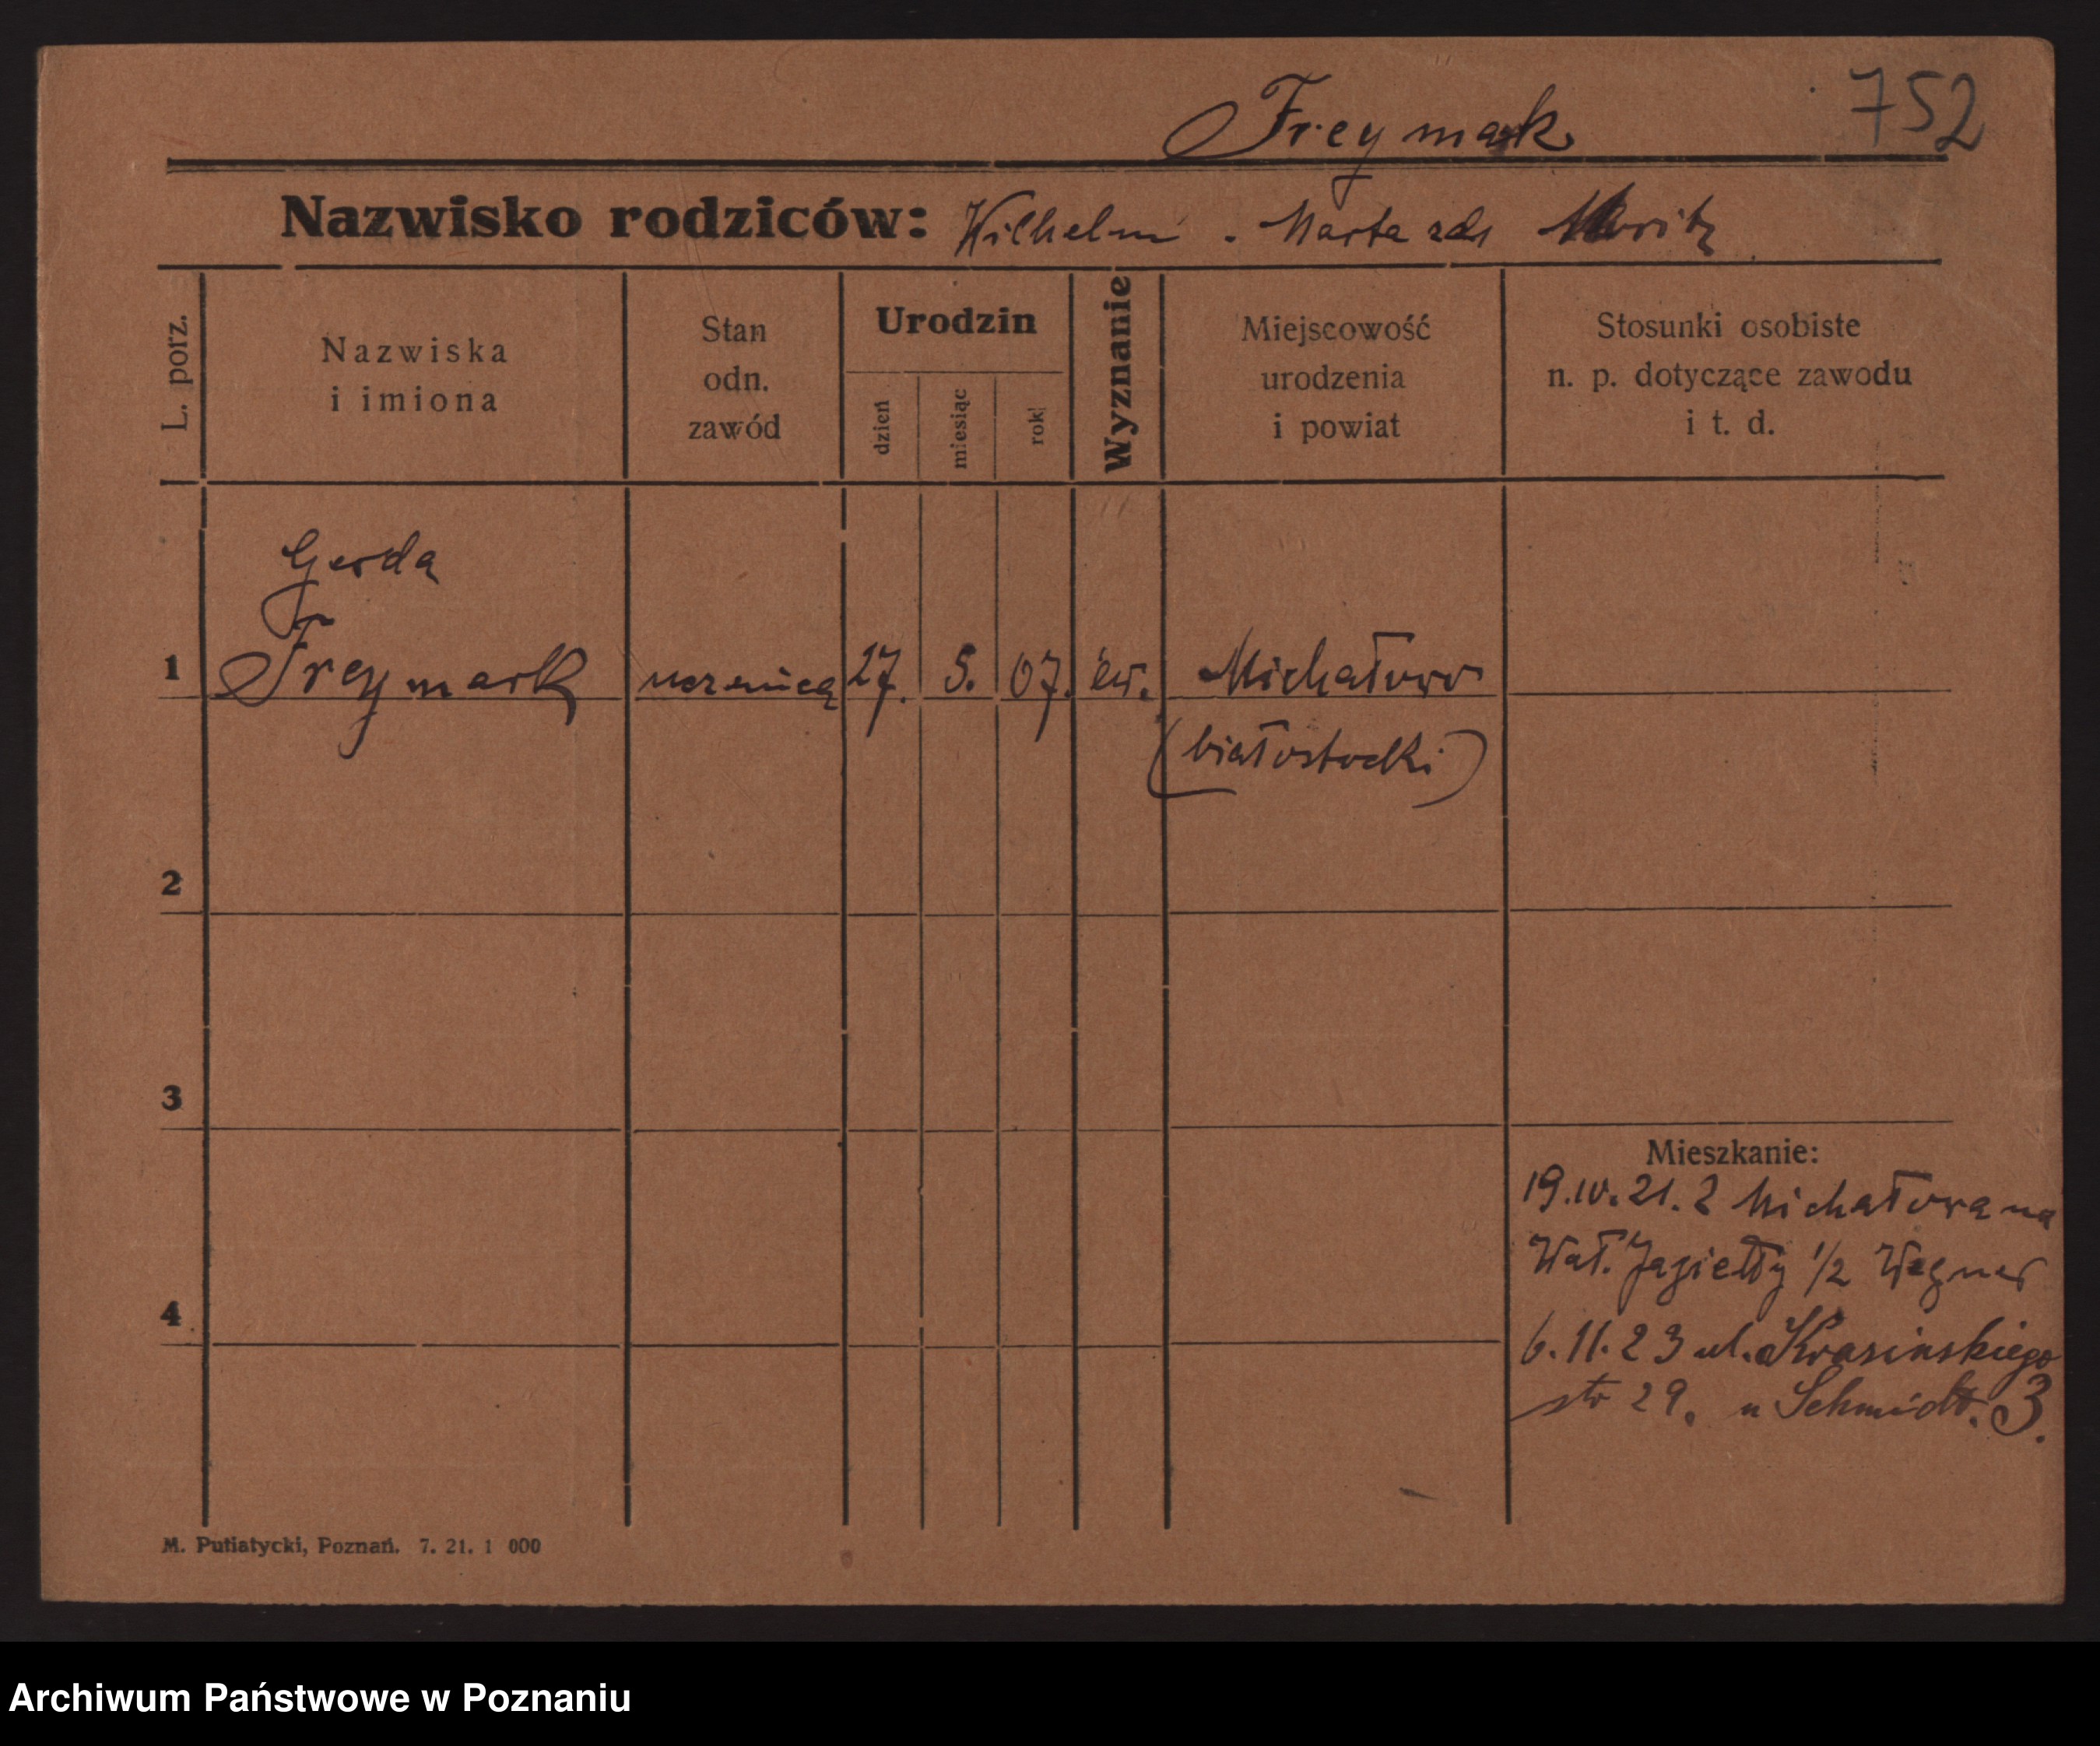 752
Freymark
Nazwisko rodziców: Wilhelm . Marta zd. Moritz
L. porz.
Nazwiska
i imiona
Stan
odn.
zawód
Urodzin
dzień
miesiąc
rok
Wyznanie
Miejscowość
urodzenia
i powiat
Stosunki osobiste
n. p. dotyczące zawodu
i t. d.
Gerda
1 Freymark uczenica 27. 5. 07. ew. Michałowo
(białostocki)
2
3
4
Mieszkanie:
19.IV.21. z Michałowa na
Wał. Jagiełły 1/2 Wegner
6.11.23 ul. Krasińskiego
str 29. u Schmidt. 3.
M. Putiatycki, Poznań. 7. 21. 1 000
Archiwum Państwowe w Poznaniu